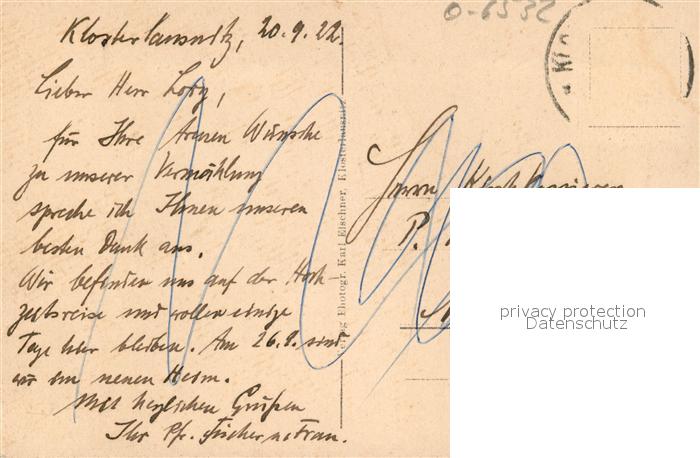 0-6532
Klosterlausnitz, 20.9.22.
Lieber Herr Lory,
für Ihre treuen Wünsche
zu unserer Vermählung
spreche ich Ihnen unseren
besten Dank aus.
Wir befinden uns auf der Hoch-
zeitsreise und wollen einige
Tage hier bleiben. Am 26.9. sind
wir im neuen Heim.
Mit herzlichen Grüßen
Ihr Pfr. Fischer u. Frau.
Verlag Photogr. Karl Elschner, Klosterlausnitz
Herrn
P.
Klo
privacy protection
Datenschutz